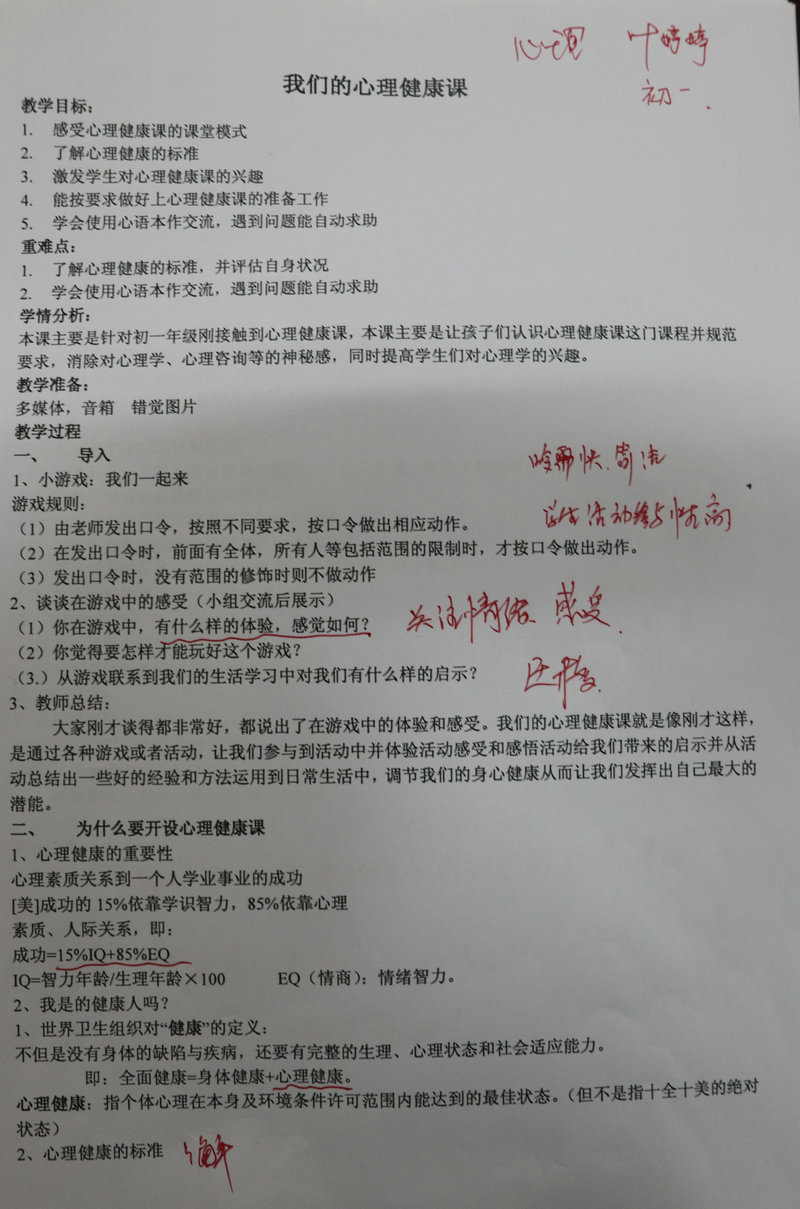 心理 叶婷婷
初一
我们的心理健康课
教学目标：
1. 感受心理健康课的课堂模式
2. 了解心理健康的标准
3. 激发学生对心理健康课的兴趣
4. 能按要求做好上心理健康课的准备工作
5. 学会使用心语本作交流，遇到问题能自动求助
重难点：
1. 了解心理健康的标准，并评估自身状况
2. 学会使用心语本作交流，遇到问题能自动求助
学情分析：
本课主要是针对初一年级刚接触到心理健康课，本课主要是让孩子们认识心理健康课这门课程并规范
要求，消除对心理学、心理咨询等的神秘感，同时提高学生们对心理学的兴趣。
教学准备：
多媒体，音箱 错觉图片
教学过程
一、 导入
1、小游戏：我们一起来
游戏规则：
（1）由老师发出口令，按照不同要求，按口令做出相应动作。
活动
（2）在发出口令时，前面有全体，所有人等包括范围的限制时，才按口令做出动作。
（3）发出口令时，没有范围的修饰时则不做动作
2、谈谈在游戏中的感受（小组交流后展示）
（1）你在游戏中，有什么样的体验，感觉如何？
关注情绪、感受
（2）你觉得要怎样才能玩好这个游戏？
（3.）从游戏联系到我们的生活学习中对我们有什么样的启示？
3、教师总结：
大家刚才谈得都非常好，都说出了在游戏中的体验和感受。我们的心理健康课就是像刚才这样，
是通过各种游戏或者活动，让我们参与到活动中并体验活动感受和感悟活动给我们带来的启示并从活
动总结出一些好的经验和方法运用到日常生活中，调节我们的身心健康从而让我们发挥出自己最大的
潜能。
二、 为什么要开设心理健康课
1、心理健康的重要性
心理素质关系到一个人学业事业的成功
[美]成功的 15%依靠学识智力，85%依靠心理
素质、人际关系，即：
成功=15%IQ+85%EQ
IQ=智力年龄/生理年龄×100 EQ（情商）：情绪智力。
2、我是的健康人吗？
1、世界卫生组织对“健康”的定义：
不但是没有身体的缺陷与疾病，还要有完整的生理、心理状态和社会适应能力。
即：全面健康=身体健康+心理健康。
心理健康：指个体心理在本身及环境条件许可范围内能达到的最佳状态。（但不是指十全十美的绝对
状态）
2、心理健康的标准